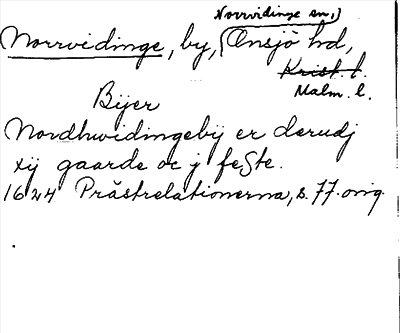 Norrvidinge sn,)
Norrvidinge, by, (Onsjö hd,
Krist. l.
Malm. l.
Bÿer
Nordhwidingebÿ er derudj
xij gaarde oc j feste.
1624 Prästrelationerna, s. 77. orig.